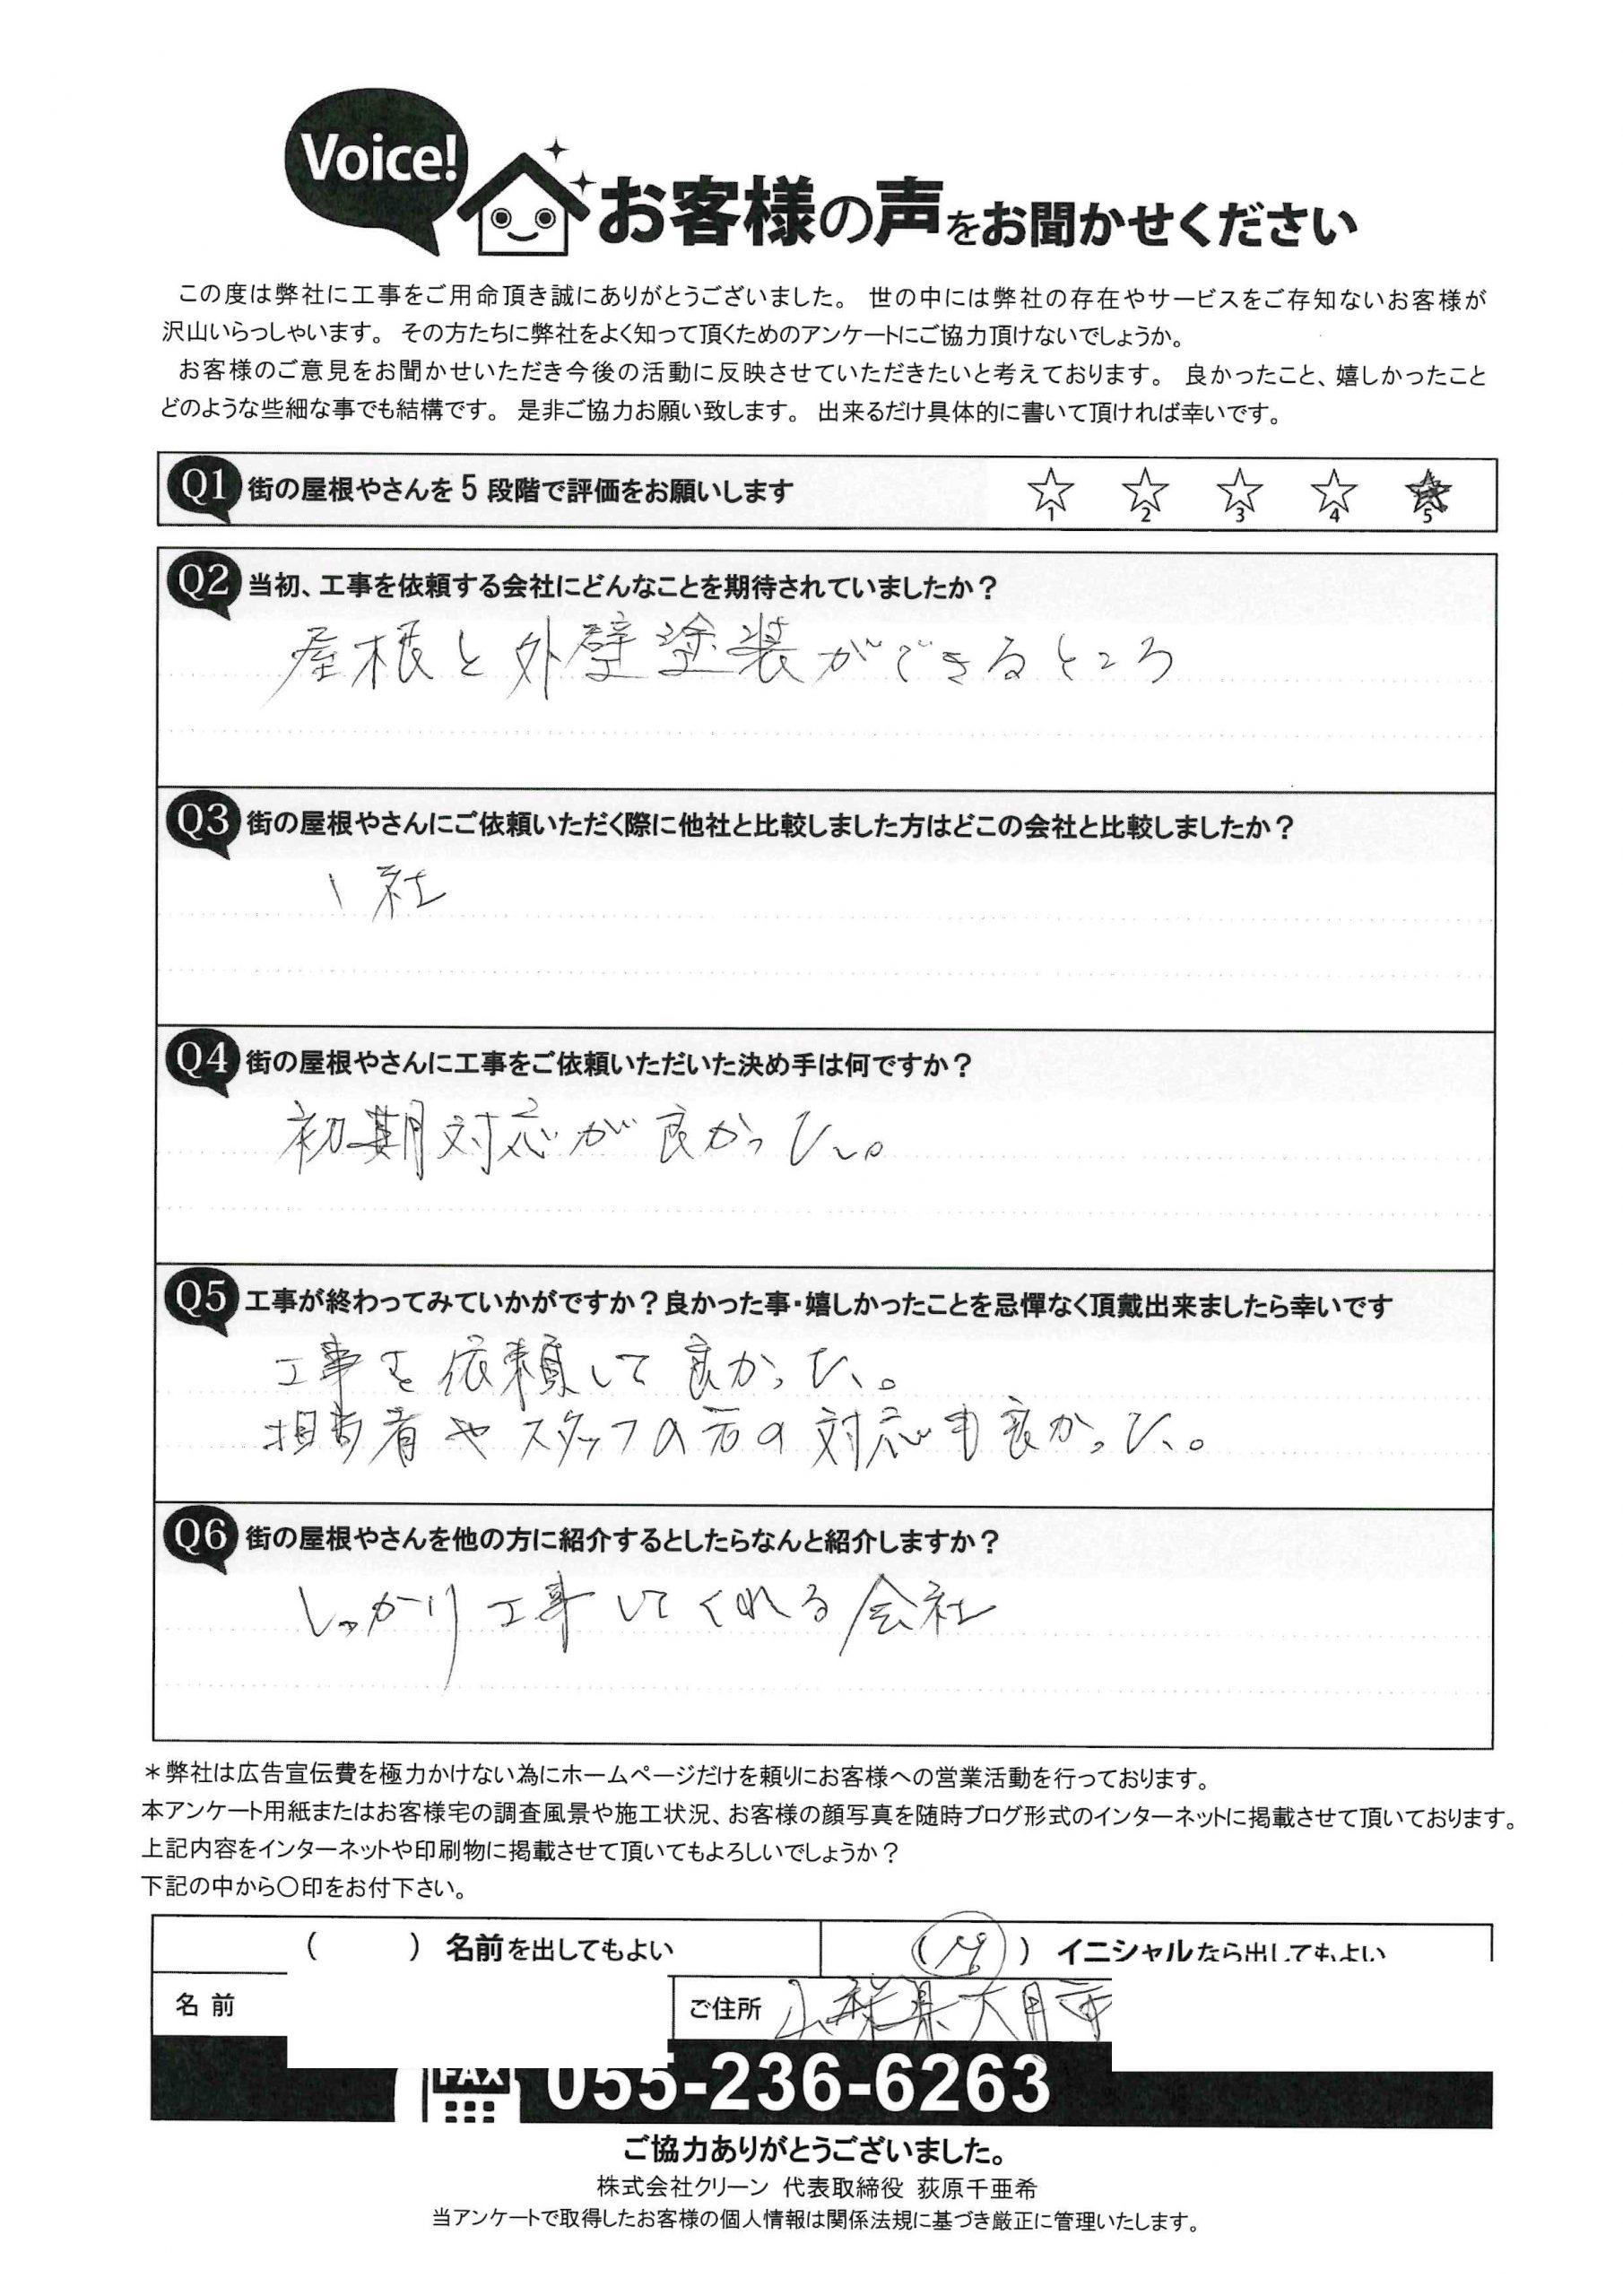 Voice!
お客様の声をお聞かせください
この度は弊社に工事をご用命頂き誠にありがとうございました。 世の中には弊社の存在やサービスをご存知ないお客様が
沢山いらっしゃいます。 その方たちに弊社をよく知って頂くためのアンケートにご協力頂けないでしょうか。
お客様のご意見をお聞かせいただき今後の活動に反映させていただきたいと考えております。 良かったこと、嬉しかったこと
どのような些細な事でも結構です。 是非ご協力お願い致します。 出来るだけ具体的に書いて頂ければ幸いです。
Q1 街の屋根やさんを5段階で評価をお願いします ☆1 ☆2 ☆3 ☆4 ★5
Q2 当初、工事を依頼する会社にどんなことを期待されていましたか?
屋根と外壁塗装ができるところ
Q3 街の屋根やさんにご依頼いただく際に他社と比較しました方はどこの会社と比較しましたか?
1社
Q4 街の屋根やさんに工事をご依頼いただいた決め手は何ですか?
初期対応が良かった。
Q5 工事が終わってみていかがですか?良かった事・嬉しかったことを忌憚なく頂戴出来ましたら幸いです
工事を依頼して良かった。
担当者やスタッフの方の対応も良かった。
Q6 街の屋根やさんを他の方に紹介するとしたらなんと紹介しますか?
しっかり工事してくれる会社
*弊社は広告宣伝費を極力かけない為にホームページだけを頼りにお客様への営業活動を行っております。
本アンケート用紙またはお客様宅の調査風景や施工状況、お客様の顔写真を随時ブログ形式のインターネットに掲載させて頂いております。
上記内容をインターネットや印刷物に掲載させて頂いてもよろしいでしょうか?
下記の中から○印をお付下さい。
( ) 名前を出してもよい ( ) イニシャルなら出してもよい
名前 ご住所 山梨県大月市
FAX 055-236-6263
ご協力ありがとうございました。
株式会社クリーン 代表取締役 荻原千亜希
当アンケートで取得したお客様の個人情報は関係法規に基づき厳正に管理いたします。